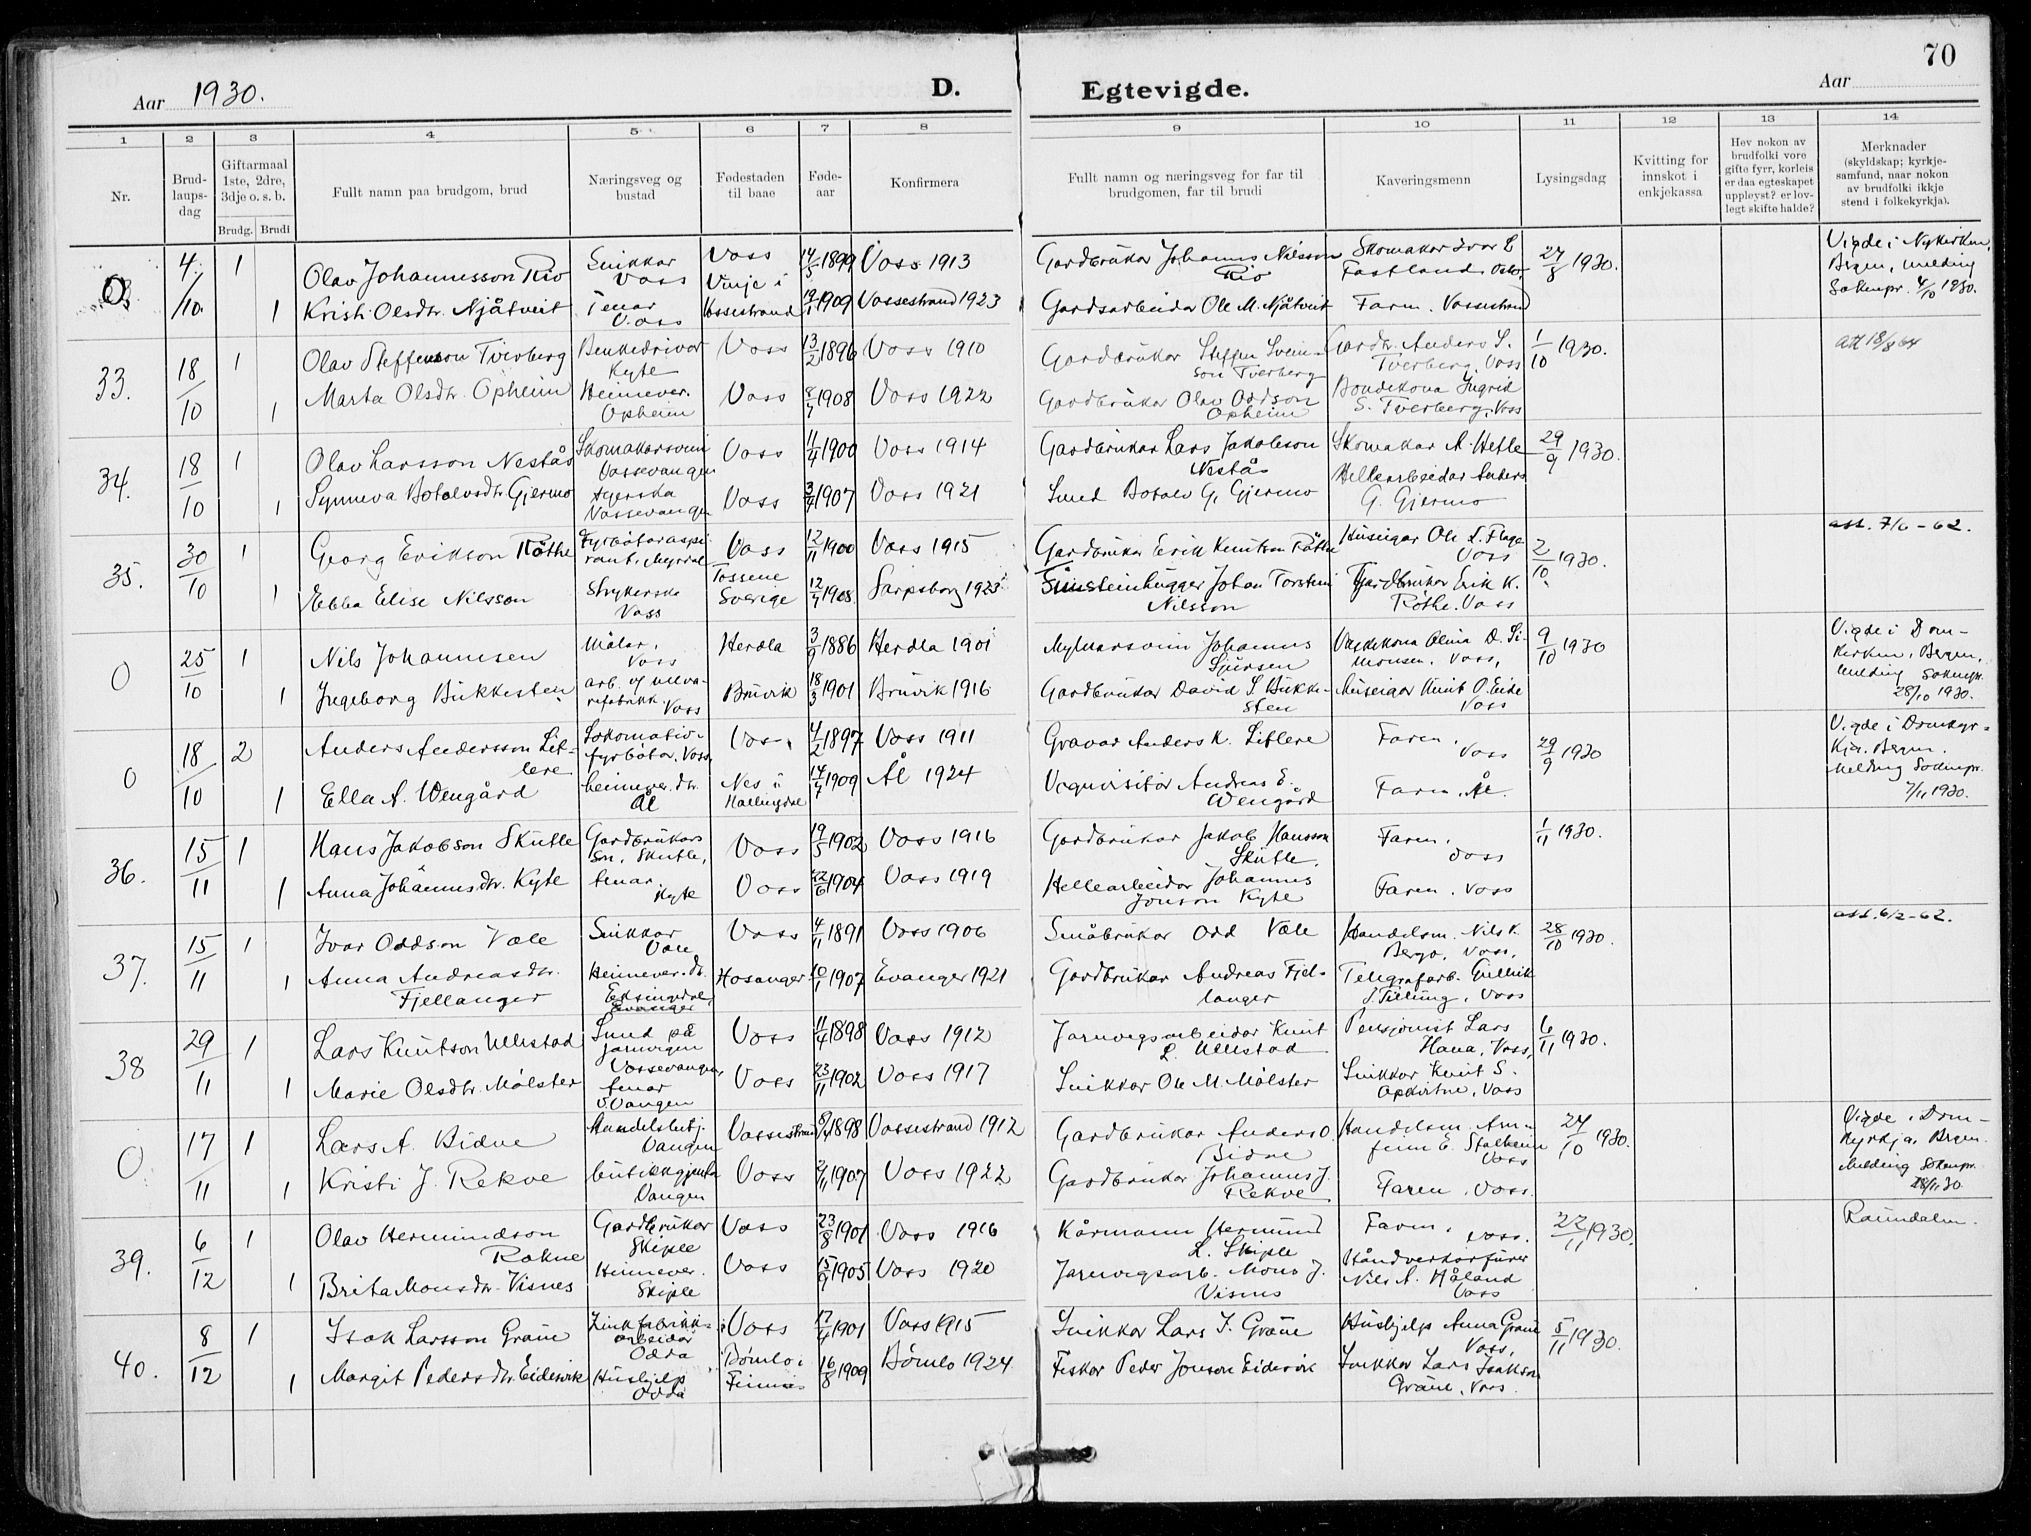 70
Aar 1930.
D.
Egtevigde.
Aar
1 2 3 4 5 6 7 8 9 10 11 12 13 14
Nr.
Brud-
laups-
dag
Giftarmaal
1ste, 2dre,
3dje o. s. b.
Brudg. Brudi
Fullt namn paa brudgom, brud
Næringsveg og
bustad
Fødestaden
til baae
Føde-
aar
Konfirmera
Fullt namn og næringsveg for far til
brudgomen, far til brudi
Kaveringsmenn
Lysingsdag
Kvitting for
innskot i
enkjekassa
Hev nokon av
brudfolki vore
gifte fyrr, korleis
er daa egteskapet
uppleyst? er lov-
legt skifte halde?
Merknader
(skyldskap; kyrkje-
samfund, naar nokon
av brudfolki ikkje
stend i folkekyrkja).
0 4/10. 1 Olav Johannesson Rio Snikkar Voss Voss 14/5 1899 Voss 1913 Gardbrukar Johannes Nilsson Rio Skomakar Ivar E Fastland 27/8 1930. Vigde i Nykerken, Bergen, melding Soknepr. 4/10 1930.
1 Kristi Olsdtr. Njåtveit Tenar Voss Vinje i Vossestrand 1909 Vossestrand 1923 Gardsarbeidar Ole M. Njåtveit Faren. Vossestrand
33. 18/10 1 Olav Steffensson Tverberg Benkedrivar Kyte Voss 13/2 1896 Voss 1910 Gardbrukar Steffen Sveinson Tverberg Gardbr. Anders S. Tverberg, Voss 1/10 1930. att 18/8 64
1 Marta Olsdtr. Opheim Heimever. Opheim Voss 1908 Voss 1922 Gardbrukar Olav Oddson Opheim Bondekona Ingrid S. Tverberg, Voss
34. 18/10 1 Olav Larsson Nestås Skomakarsvein Vossevangen Voss 11/4 1900 Voss 1914 Gardbrukar Lars Jakobson Nestås Skomakar A. Hefle 29/9 1930.
1 Synneva Botolvsdtr. Gjermo Vossevangen Voss 3/4 1907 Voss 1921 Smed Botolv G. Gjermo Hellearbeidar Anders G. Gjermo
35. 30/10 1 Georg Erikson Røthe Fyrbøtaraspirant, Myrdal Voss 12/11 1900 Voss 1915 Gardbrukar Erik Knutson Røthe Huseigar Ole L. Flage Voss 2/10 1930. att. 7/6-62.
1 Ebba Elise Nilsson Strykerska Voss Tossene Sverige 1908 Sarpsborg 1923 steinhugger Johan Torstein Nilsson Gardbrukar Erik K. Røthe. Voss
0 25/10 1 Nils Johannesen Målar, Voss Herdla 1886 Herdla 1901 Mylnarsvein Johannes Sjursen Vaskekona Olina D. Simonsen. Voss, 9/10 1930 Vigde i Domkirken, Bergen, Melding Soknepr. 28/10 1930.
1 Ingeborg Bukkesten arb. Voss Bruvik 18/3 1901 Bruvik 1916 Gardbrukar David S Bukkesten Huseigar Knut O. Eide Voss
0 18/10 2 Anders Andersson Litlere Lokomotivfyrbøtar, Voss Voss 4/2 1897 Voss 1911 Gravar Anders K. Litlere Faren, Voss 29/9 1930 Vigde i Domkyrkja. Bergen. Melding Soknepr. 7/11 1930.
1 Ella A. Wengård heimever. dtr. Ål Nes i Hallingdal 1909 Ål 1924 Andreas E. Wengård Faren, Ål.
36. 15/11 1 Hans Jakobson Skutle Gardbrukarson, Skutle, Voss 19/5 1902 Voss 1916 Gardbrukar Jakob Hansson Skutle, Faren, Voss 1/11 1930.
1 Anna Johannesdtr. Kyte tenar, Kyte Voss 22/6 1904 Voss 1919 Hellearbeidar Johannes Jonson Kyte Faren. Voss
37. 15/11 1 Ivar Oddson Væle Snikkar Væle Voss 4/11 1891 Voss 1906 Småbrukar Odd Væle Handelsm. Nils K. Bergo, Voss, 28/10 1930. att. 6/2-62.
1 Anna Andreasdtr. Fjellanger Heimever. dtr. Eksingedal, Evanger Hosanger 1907 Evanger 1921 Gardbrukar Andreas Fjellanger Telegrafarb. Voss
38 29/11 1 Lars Knutson Ullestad Smed på jarnvegen Vossevangen, Voss 11/4 1898 Voss 1912 Jarnvegsarbeidar Knut L. Ullestad Pensjonist Lars Hana, Voss, 6/11 1930.
1 Marie Olsdtr. Mølster tenar Vangen Voss 23/11 1902 Voss 1917 Snikkar Ole M. Mølster Snikkar Knut S. Voss
0 17/11 1 Lars A. Bidne Handelsbetj. Vangen Vossestrand 1898 Vossestrand 1912 Gardbrukar Anders O. Bidne Handelsm. Arnfinn E. Stalheim Voss 24/10 1930. Vigde i Domkyrkja, Bergen. Melding Soknepr. 18/11 30
1 Kristi J. Rekve butikkgjenta Vangen Voss 1907 Voss 1922 Gardbrukar Johannes J. Rekve Faren. Voss.
39. 6/12 1 Olav Hermundson Rokne Gardbrukar Skiple Voss 23/8 1901 Voss 1916 Kårmann Hermund L. Skiple Faren, Voss. 22/11 1930. Raundalen.
1 Brita Monsdtr. Visnes Heimever. Skiple Voss 15/9 1905 Voss 1920 Jarnvegsarb. Mons J. Visnes Håndverkarfører Nils A. Håland Voss
40. 8/12 1 Isak Larsson Græe Zinkfabrikkarbeidar Odda Voss 1901 Voss 1915 Snikkar Lars I. Græe Hushjelp Anna Græe Voss, 5/11 1930.
1 Margit Pedersdtr. Eidesvik Hushjelp Odda Bømlo i Finnås 16/8 1909 Bømlo 1924 Fiskar Peder Jonson Eidesvik Snikkar Lars Isakson Græe, Voss.